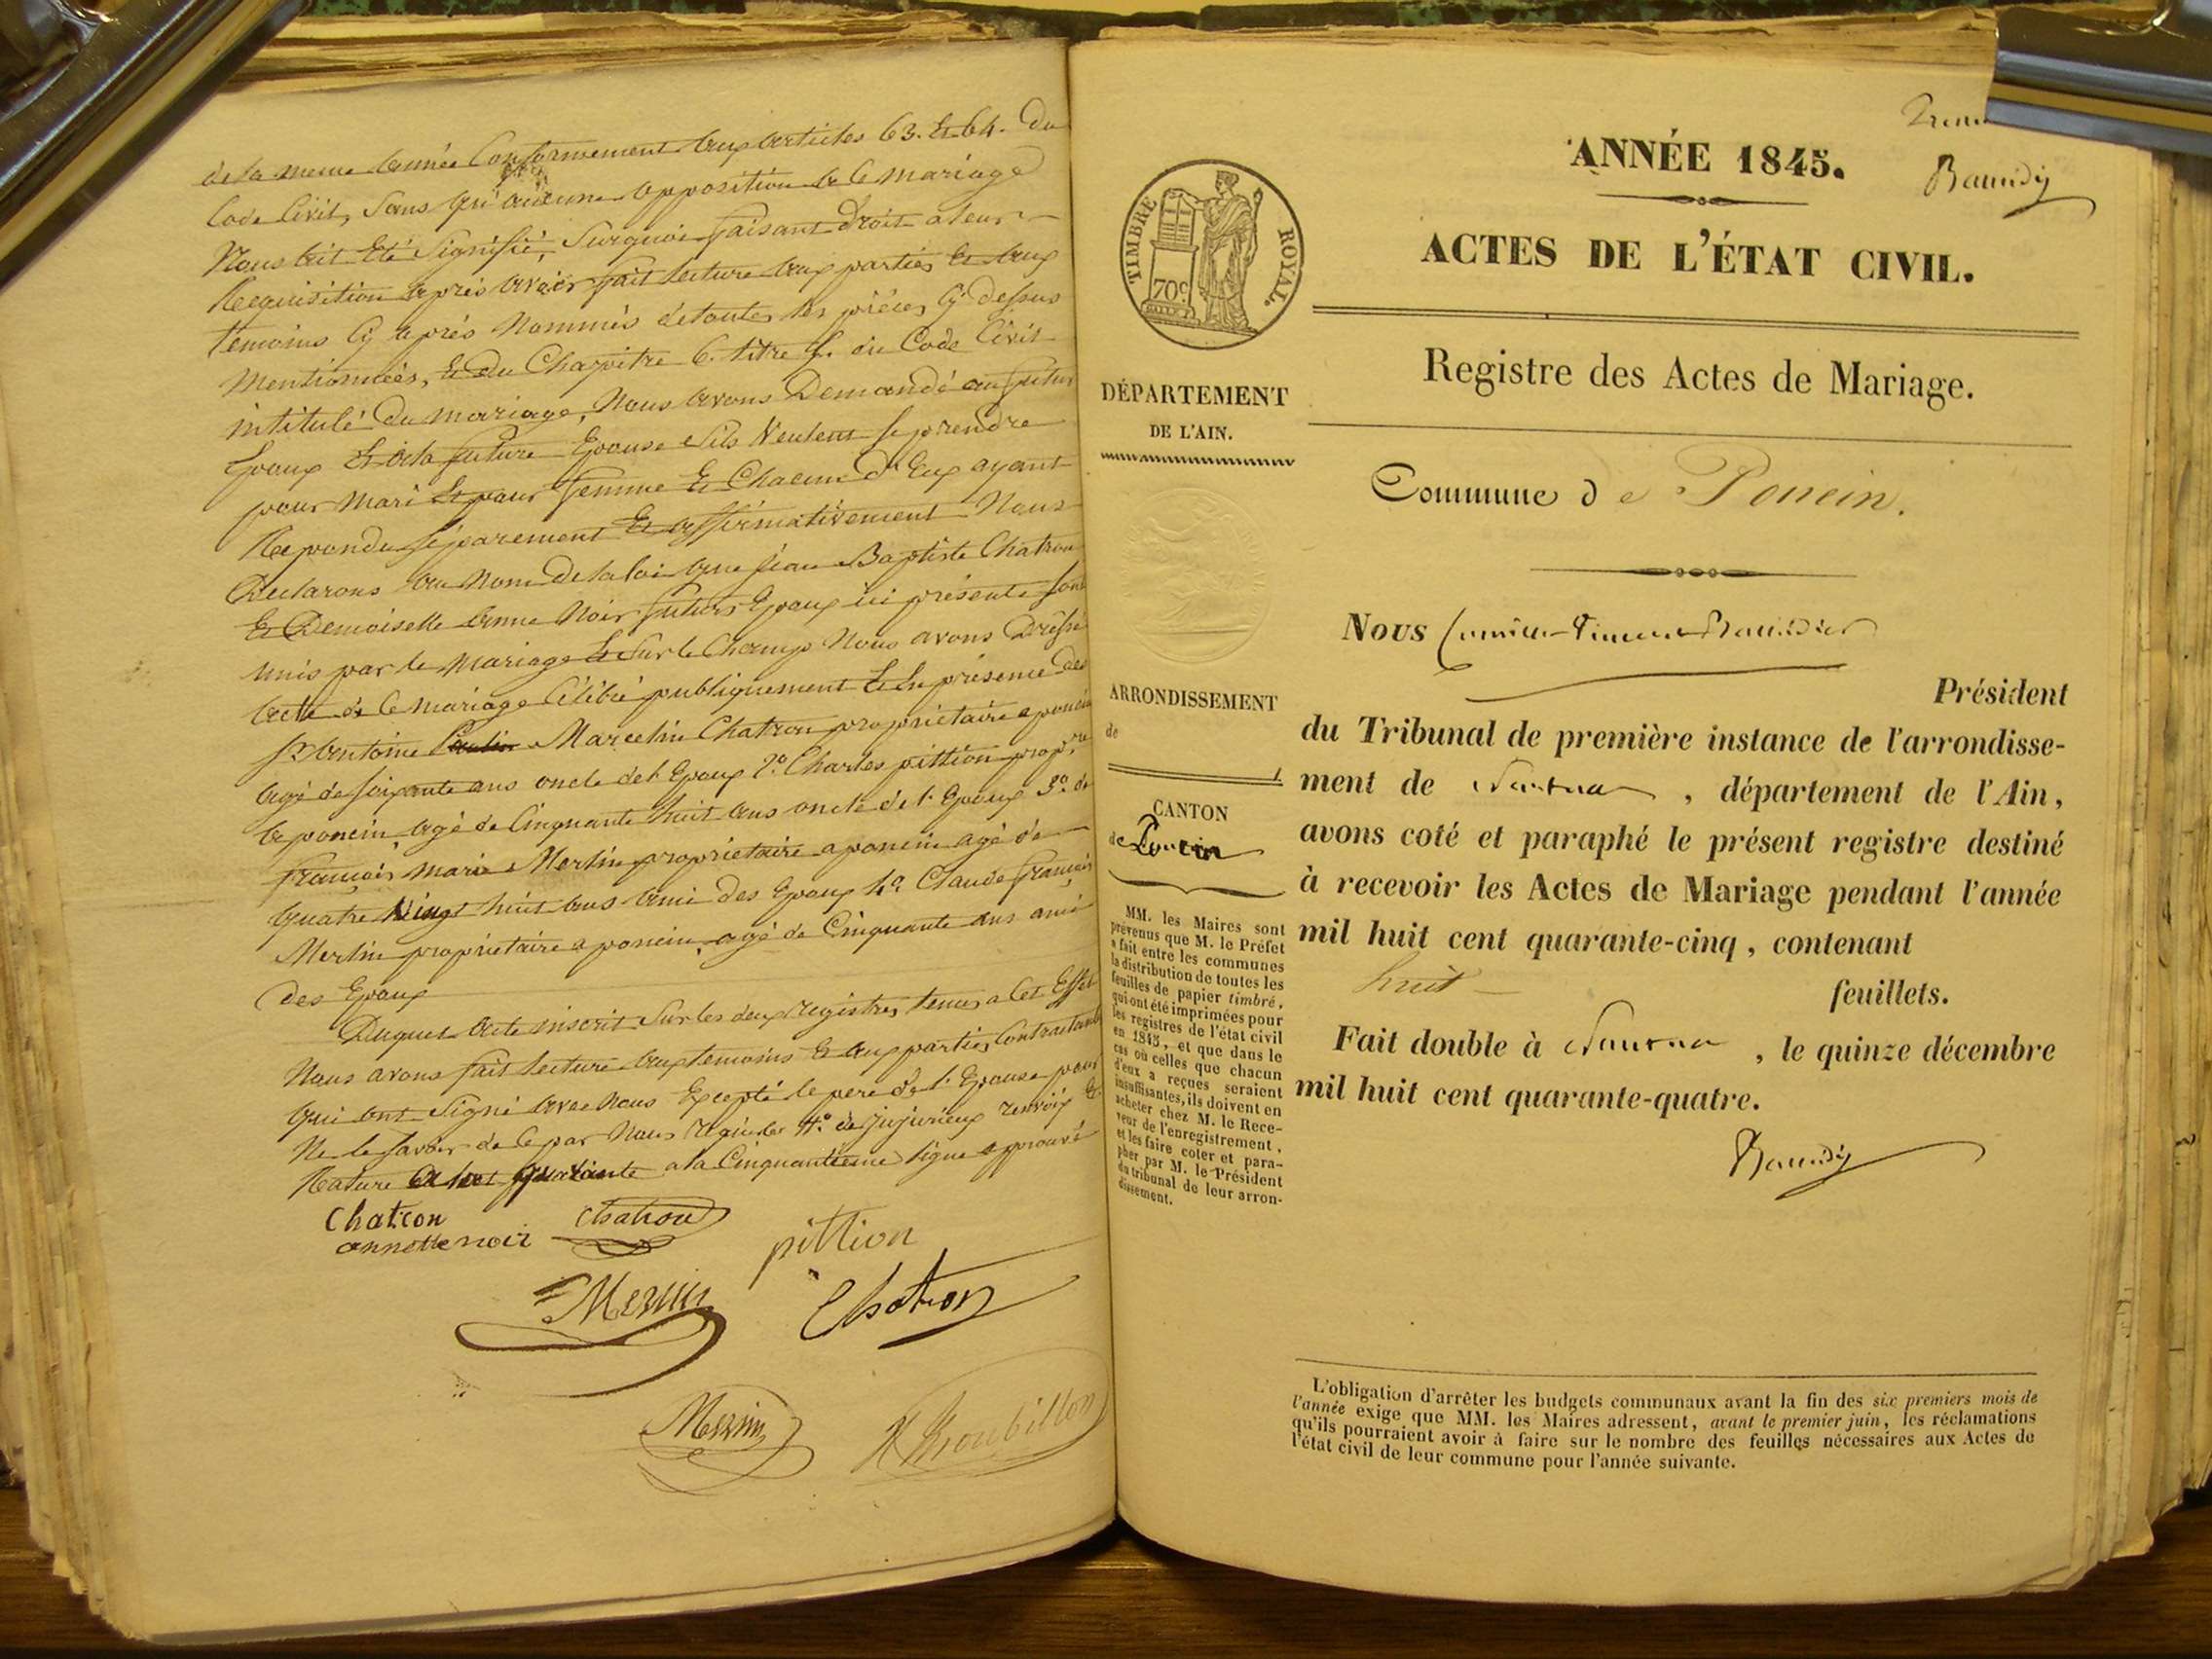 de la meme année Conformement aux articles 63. et 64. du
Code Civil, sans qu'aucune opposition a ce mariage
Nous ait été Signifié, Surquoi faisant droit a leur
Requisition après avoir fait lecture aux parties et aux
temoins cy après nommés de toutes les pièces cy dessus
mentionnées, et du Chapitre 6. titre 5. du Code Civil
intitulé du mariage, Nous avons Demandé au futur
Epoux et a la future Epouse s'ils veulent se prendre
pour mari et pour femme et Chacun d'Eux ayant
Repondu séparement et affirmativement Nous
Declarons au Nom de la loi que Jean Baptiste Chatron
et Demoiselle Anne Noir futurs Epoux ici présents sont
unis par le mariage et Sur le Champ Nous avons Dressé
acte de ce mariage Célébré publiquement et en présence des
Srs Antoine Marcelin Chatron propriétaire a poncin
agé de soixante ans oncle de l'Epoux 2.° Charles pittion prop.re
a poncin, agé de Cinquante huit ans oncle de l'Epoux 3.° de
françois marie Merlin propriétaire a poncin agé de
quatre Vingt huit ans ami des Epoux 4.° Claude françois
Merlin propriétaire a poncin, agé de Cinquante ans ami
des Epoux
Duquel acte inscrit Sur les deux registres tenus a Cet Effet
Nous avons fait lecture aux temoins et aux parties Contractantes
qui ont Signé avec Nous Excepté le pere de l'Epouse pour
Ne le savoir de ce par Nous requis de Jujurieux renvoi et
Rature a la Cinquantième ligne approuvé
Chatron
annette noir
Chatron
pittion
Merlin
Chatron
Merlin
Troubillon
Baudy
ANNÉE 1845.
ACTES DE L'ÉTAT CIVIL.
Registre des Actes de Mariage.
TIMBRE ROYAL.
70c
DÉPARTEMENT
DE L'AIN.
ARRONDISSEMENT
de
CANTON
de Poncin
MM. les Maires sont
prévenus que M. le Préfet
a fait entre les communes
la distribution de toutes les
feuilles de papier timbré,
qui ont été imprimées pour
les registres de l'état civil
en 1845, et que dans le
cas où celles que chacun
d'eux a reçues seraient
insuffisantes, ils doivent en
acheter chez M. le Rece-
veur de l'enregistrement,
et les faire coter et para-
pher par M. le Président
du tribunal de leur arron-
dissement.
Commune de Poncin.
Nous
Président
du Tribunal de première instance de l'arrondisse-
ment de Nantua, département de l'Ain,
avons coté et paraphé le présent registre destiné
à recevoir les Actes de Mariage pendant l'année
mil huit cent quarante-cinq, contenant
huit feuillets.
Fait double à Nantua, le quinze décembre
mil huit cent quarante-quatre.
L'obligation d'arrêter les budgets communaux avant la fin des six premiers mois de
l'année exige que MM. les Maires adressent, avant le premier juin, les réclamations
qu'ils pourraient avoir à faire sur le nombre des feuilles nécessaires aux Actes de
l'état civil de leur commune pour l'année suivante.